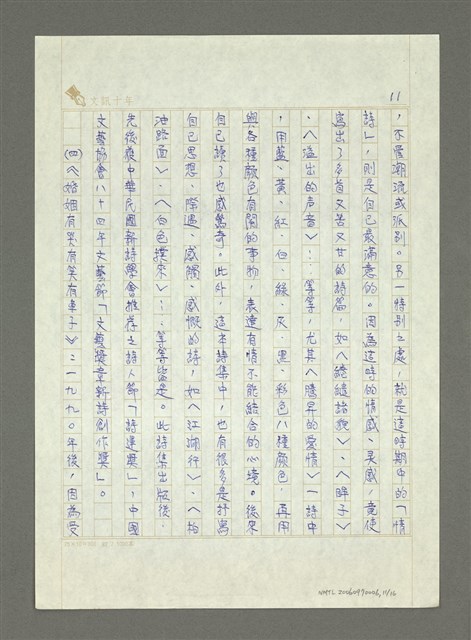 文訊十年
11
,不管潮流或派別。另一特別之處,就是這時期中的「情
詩」,則是自己最滿意的。因為這時的情感、靈感,竟使
寫出了多首又苦又甘的詩篇,如〈繾綣諮貌〉、〈眸子〉
、〈溢出的声音〉⋯⋯等等,尤其〈騰昇的愛情〉一詩中
,用藍、黃、紅、白、綠、灰、黑、彩色八種顏色,再用
與各種顏色有關的事物,表達有情不能結合的心境。後來
自己讀了也感驚奇。此外,這本詩集中,也有很多是抒寫
自己思想、際遇、感觸、感慨的詩,如〈江湖行〉、〈拍
油路面〉、〈白色撲來〉⋯⋯等等皆是。此詩集出版後,
先後獲中華民國新詩學會推荐之詩人節「詩運獎」,中國
文藝協會八十四年文藝節「文藝獎章新詩創作獎」。
㈣《婚姻有哭有笑有車子》:一九九〇年後,因為受
NMTL 20060970006, 11/16